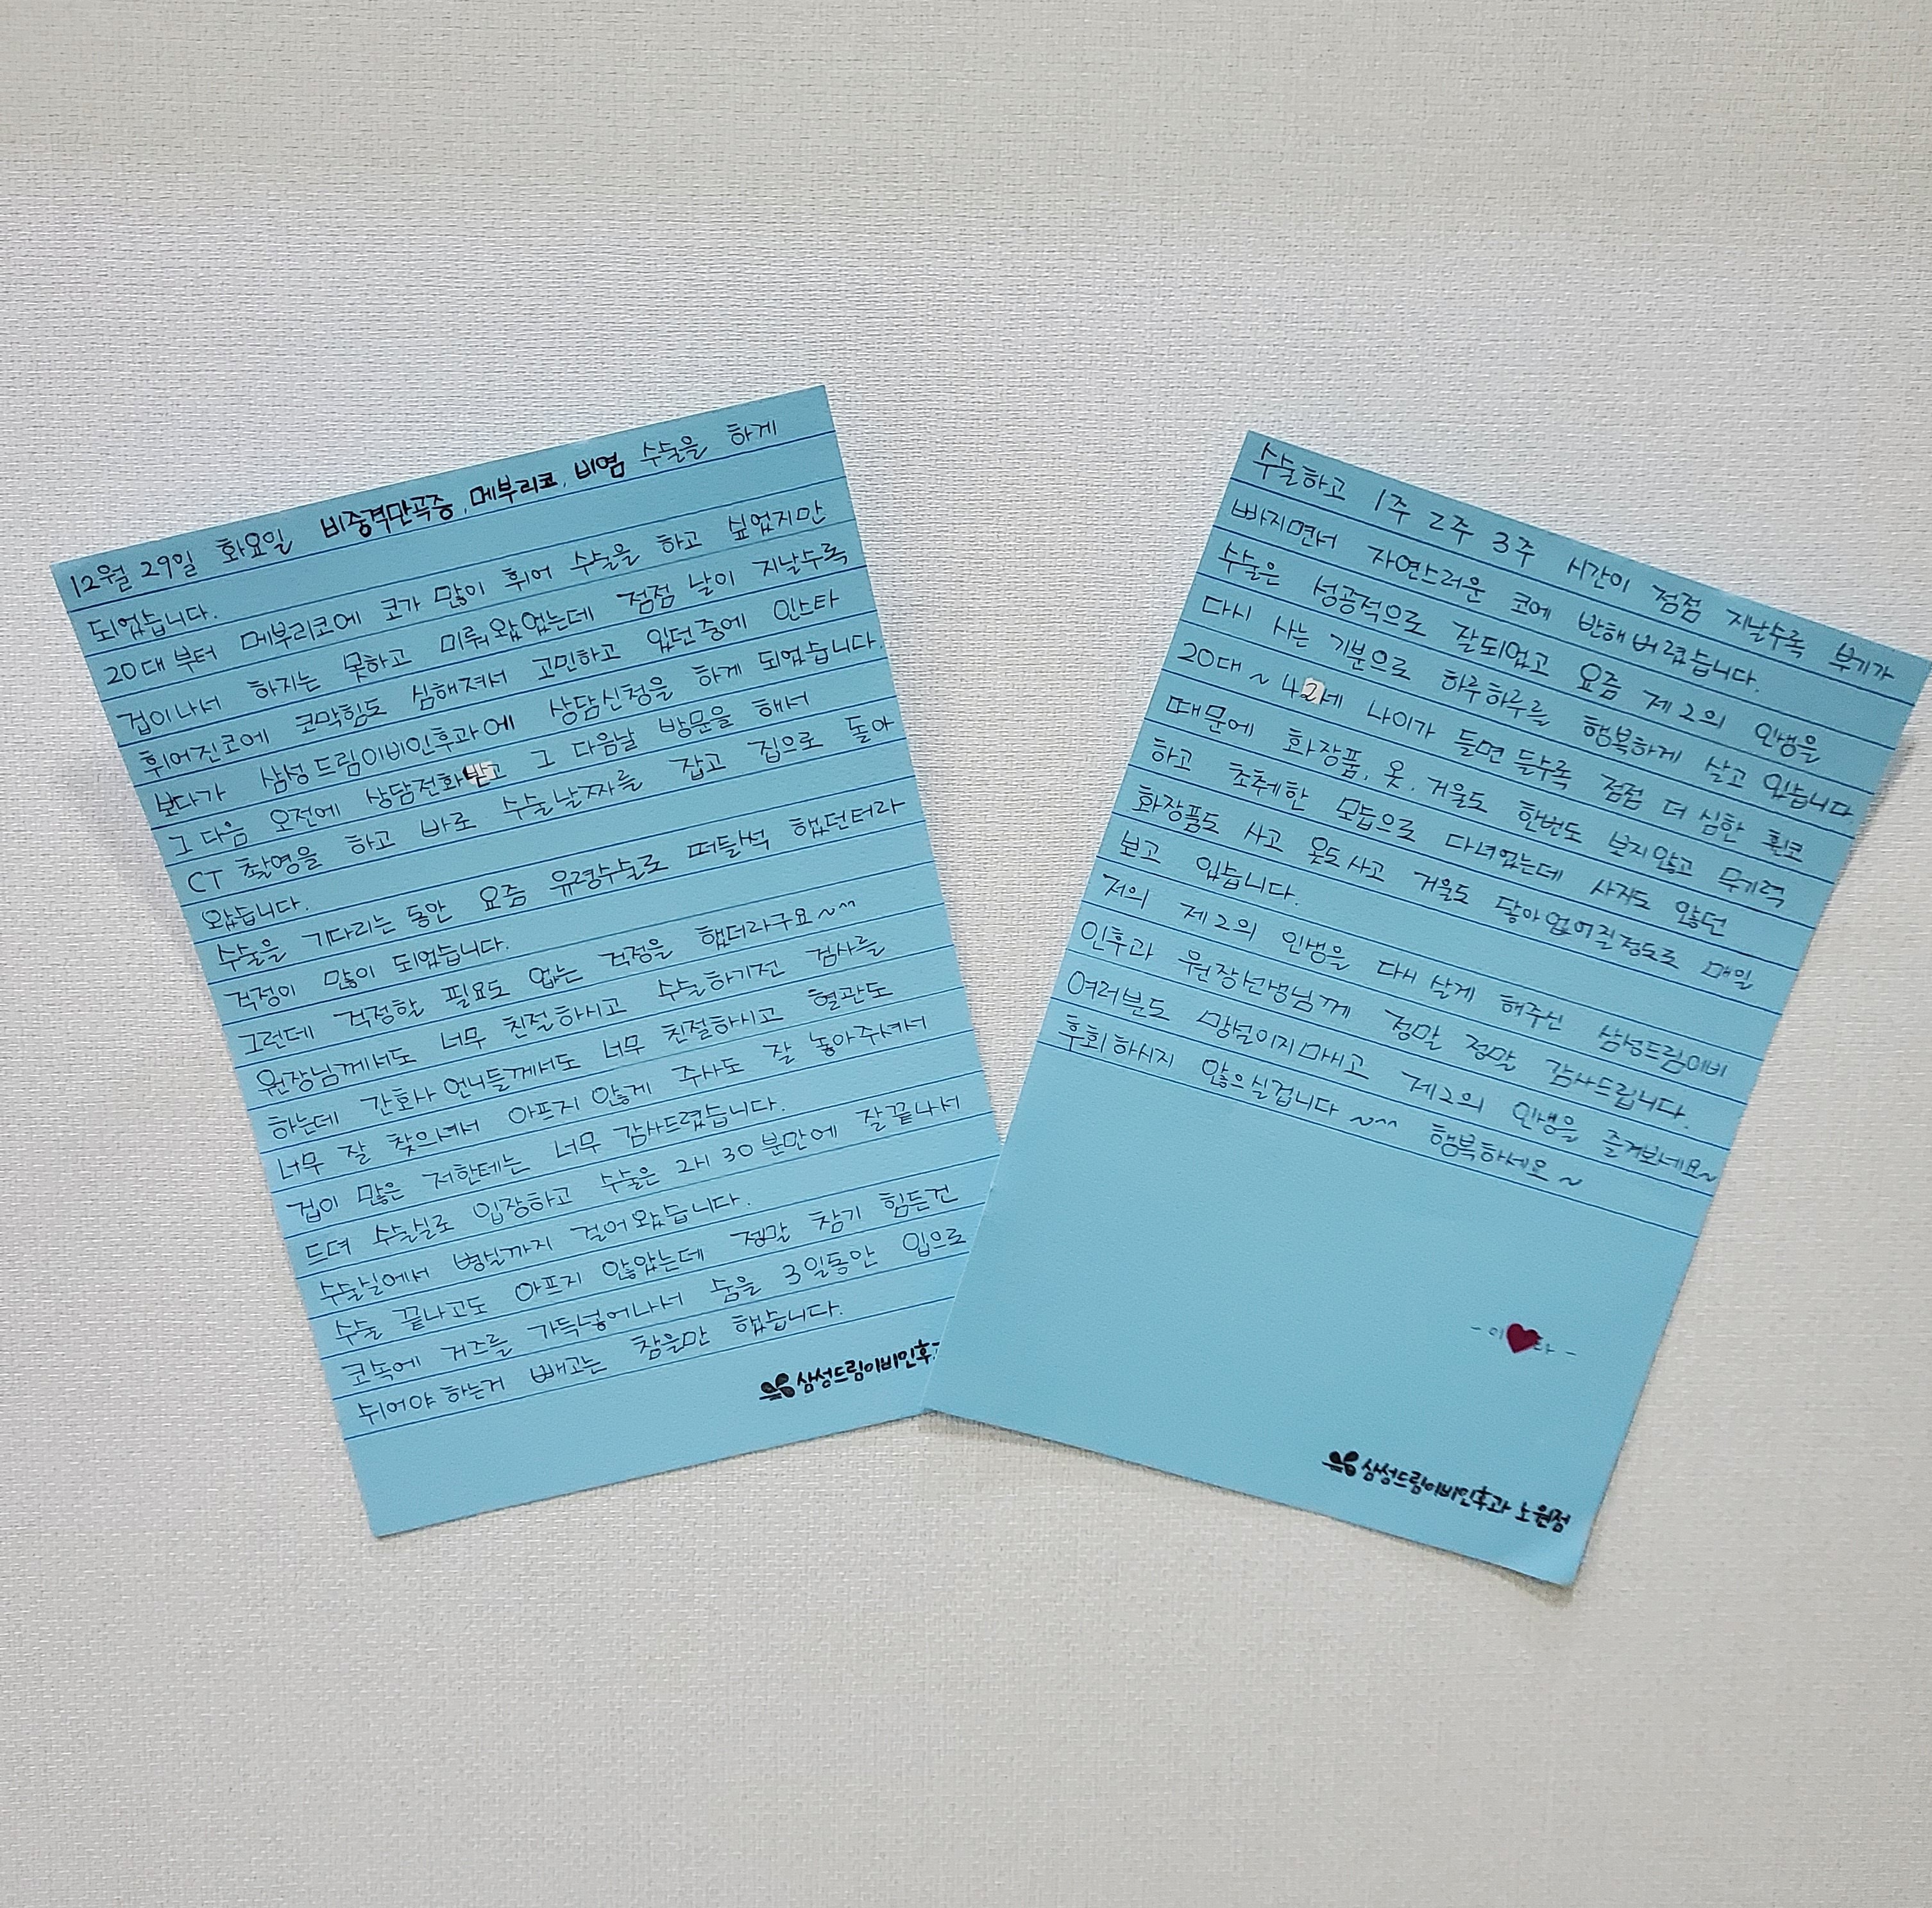 12월 29일 화요일 비중격만곡증, 메부리코, 비염 수술을 하게
되었습니다.
20대부터 메부리코에 코가 많이 휘어 수술을 하고 싶었지만
겁이나서 하지는 못하고 미뤄왔었는데 점점 날이 지날수록
휘어진코에 코막힘도 심해져서 고민하고 있던중에 인스타
보다가 삼성드림이비인후과에 상담신청을 하게 되었습니다.
그 다음 오전에 상담전화받고 그 다음날 방문을 해서
CT 촬영을 하고 바로 수술날짜를 잡고 집으로 돌아
왔습니다.
수술을 기다리는 동안 요즘 유령수술로 떠들썩 했던터라
걱정이 많이 되었습니다.
그런데 걱정할 필요도 없는 걱정을 했더라구요~^^
원장님께서도 너무 친절하시고 수술하기전 검사를
하는데 간호사 언니들께서도 너무 친절하시고 혈관도
너무 잘 찾으셔서 아프지 않게 주사도 잘 놓아주셔서
겁이 많은 저한테는 너무 감사드렸습니다.
드뎌 수술실로 입장하고 수술은 2시 30분만에 잘끝나서
수술실에서 병실까지 걸어왔습니다.
수술 끝나고도 아프지 않았는데 정말 참기 힘든건
코속에 거즈를 가득넣어나서 숨을 3일동안 입으로
쉬어야 하는거 빼고는 참을만 했습니다.
삼성드림이비인후
수술하고 1주 2주 3주 시간이 점점 지날수록 붓기가
빠지면서 자연스러운 코에 반해버렸습니다.
수술은 성공적으로 잘되었고 요즘 제2의 인생을
다시 사는 기분으로 하루하루를 행복하게 살고 있습니다
20대 ~ 42세 나이가 들면 들수록 점점 더 심한 휜코
때문에 화장품, 옷, 거울도 한번도 보지않고 무기력
하고 초췌한 모습으로 다녀었는데 사지도 않던
화장품도 사고 옷도 사고 거울도 닳아없어질정도로 매일
보고 있습니다.
저의 제2의 인생을 다시 살게 해주신 삼성드림이비
인후과 원장선생님께 정말 정말 감사드립니다.
여러분도 망설이지마시고 제2의 인생을 즐겨보세요~
후회하시지 않으실겁니다~^^ 행복하세요~
- 이♥라 -
삼성드림이비인후과 노원점